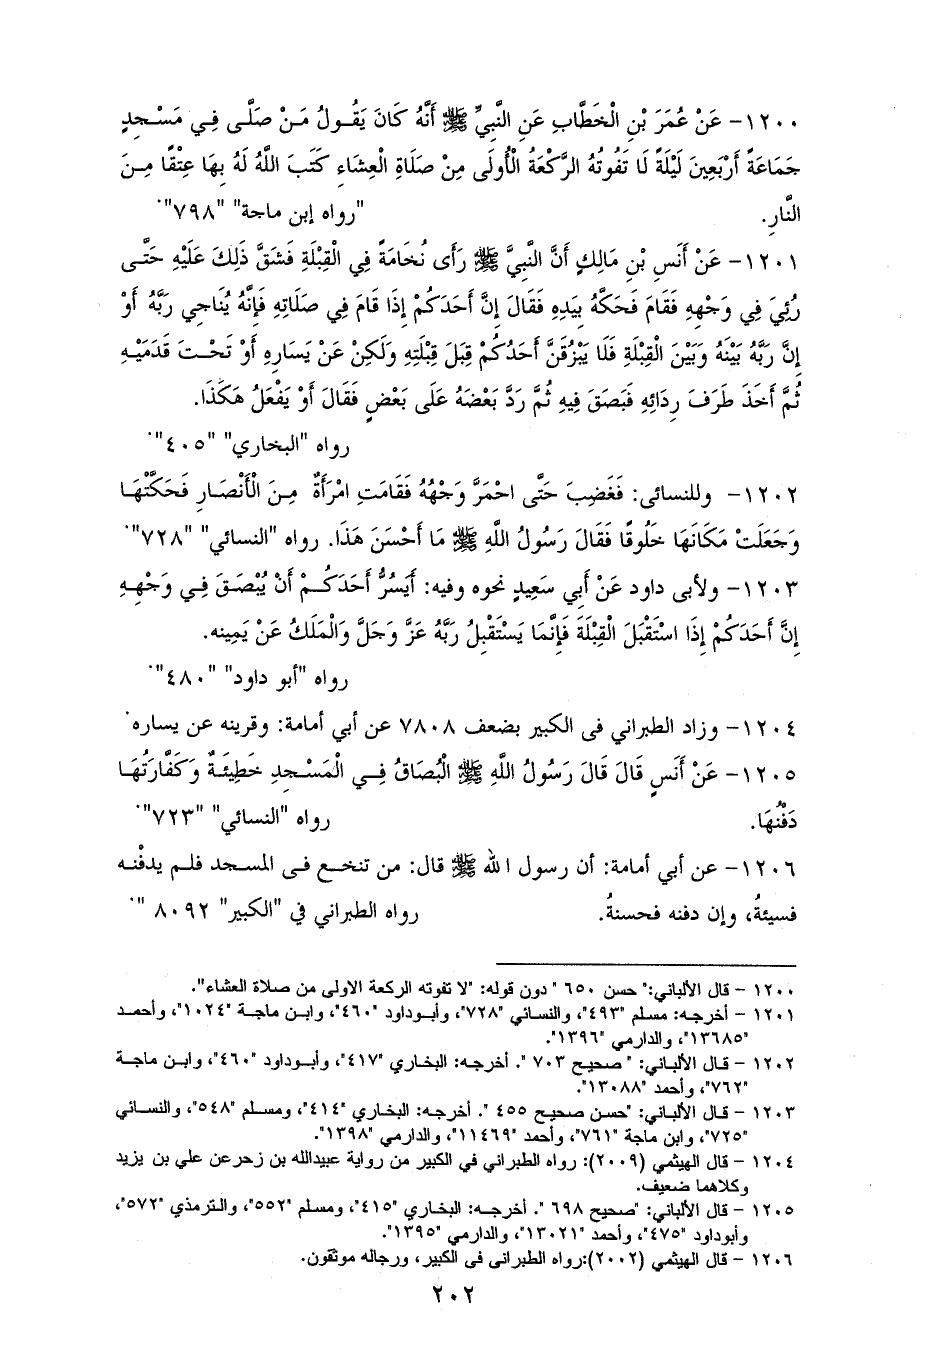 ١٢٠٠- عَنْ عُمَرَ بْنِ الْخَطَّابِ عَنِ النَّبِيِّ ﷺ أَنَّهُ كَانَ يَقُولُ مَنْ صَلَّى فِي مَسْجِدٍ
جَمَاعَةً أَرْبَعِينَ لَيْلَةً لَا تَفُوتُهُ الرَّكْعَةُ الْأُولَى مِنْ صَلَاةِ الْعِشَاءِ كَتَبَ اللَّهُ لَهُ بِهَا عِتْقًا مِنَ
النَّارِ. "رواه إبن ماجة" "٧٩٨".
١٢٠١- عَنْ أَنَسِ بْنِ مَالِكٍ أَنَّ النَّبِيَّ ﷺ رَأَى نُخَامَةً فِي الْقِبْلَةِ فَشَقَّ ذَلِكَ عَلَيْهِ حَتَّى
رُئِيَ فِي وَجْهِهِ فَقَامَ فَحَكَّهُ بِيَدِهِ فَقَالَ إِنَّ أَحَدَكُمْ إِذَا قَامَ فِي صَلَاتِهِ فَإِنَّهُ يُنَاجِي رَبَّهُ أَوْ
إِنَّ رَبَّهُ بَيْنَهُ وَبَيْنَ الْقِبْلَةِ فَلَا يَبْزُقَنَّ أَحَدُكُمْ قِبَلَ قِبْلَتِهِ وَلَكِنْ عَنْ يَسَارِهِ أَوْ تَحْتَ قَدَمَيْهِ
ثُمَّ أَخَذَ طَرَفَ رِدَائِهِ فَبَصَقَ فِيهِ ثُمَّ رَدَّ بَعْضَهُ عَلَى بَعْضٍ فَقَالَ أَوْ يَفْعَلُ هَكَذَا.
رواه "البخاري" "٤٠٥".
١٢٠٢- وللنسائى: فَغَضِبَ حَتَّى احْمَرَّ وَجْهُهُ فَقَامَتِ امْرَأَةٌ مِنَ الْأَنْصَارِ فَحَكَّتْهَا
وَجَعَلَتْ مَكَانَهَا خَلُوقًا فَقَالَ رَسُولُ اللَّهِ ﷺ مَا أَحْسَنَ هَذَا. رواه "النسائي" "٧٢٨".
١٢٠٣- ولأبى داود عَنْ أَبِي سَعِيدٍ نحوه وفيه: أَيَسُرُّ أَحَدَكُمْ أَنْ يُبْصَقَ فِي وَجْهِهِ
إِنَّ أَحَدَكُمْ إِذَا اسْتَقْبَلَ الْقِبْلَةَ فَإِنَّمَا يَسْتَقْبِلُ رَبَّهُ عَزَّ وَجَلَّ وَالْمَلَكُ عَنْ يَمِينِه.
رواه "أبو داود" "٤٨٠".
١٢٠٤- وزاد الطبراني فى الكبير بضعف ٧٨٠٨ عن أبي أمامة: وقرينه عن يساره.
١٢٠٥- عَنْ أَنَسٍ قَالَ قَالَ رَسُولُ اللَّهِ ﷺ الْبُصَاقُ فِي الْمَسْجِدِ خَطِيئَةٌ وَكَفَّارَتُهَا
دَفْنُهَا. رواه "النسائي" "٧٢٣".
١٢٠٦- عن أبي أمامة: أن رسول الله ﷺ قال: من تنخع فى المسجد فلم يدفْنه
فسيئةُ، وإن دفنه فحسنةُ. رواه الطبراني في "الكبير" ٨٠٩٢ ".
١٢٠٠ - قال الألباني:" حسن ٦٥٠ " دون قوله: "لا تفوته الركعة الاولى من صلاة العشاء".
١٢٠١ - أخرجه: مسلم "٤٩٣"، والنسائي "٧٢٨"، وأبوداود "٤٦٠"، وابن ماجة "١٠٢٤"، وأحمد
"١٣٦٨٥"، والدارمي "١٣٩٦".
١٢٠٢ - قال الألباني: " صحيح ٧٠٣ ". أخرجه: البخاري "٤١٧"، وأبوداود "٤٦٠"، وابن ماجة
"٧٦٢"، وأحمد "١٣٠٨٨".
١٢٠٣ - قال الألباني: "حسن صحيح ٤٥٥ ". أخرجه: البخاري "٤١٤"، ومسلم "٥٤٨"، والنسائي
"٧٢٥"، وابن ماجة "٧٦١"، وأحمد "١١٤٦٩"، والدارمي "١٣٩٨".
١٢٠٤ - قال الهيثمي (٢٠٠٩): رواه الطبراني في الكبير من رواية عبيدالله بن زحرعن علي بن يزيد
وكلاهما ضعيف.
١٢٠٥ - قال الألباني: "صحيح ٦٩٨ ". أخرجه: البخاري "٤١٥"، ومسلم "٥٥٢"، والترمذي "٥٧٢"،
وأبوداود "٤٧٥"، وأحمد "١٣٠٢١"، والدارمي "١٣٩٥".
١٢٠٦ - قال الهيثمي (٢٠٠٢):رواه الطبرانى فى الكبير، ورجاله موثقون.
٢٠٢